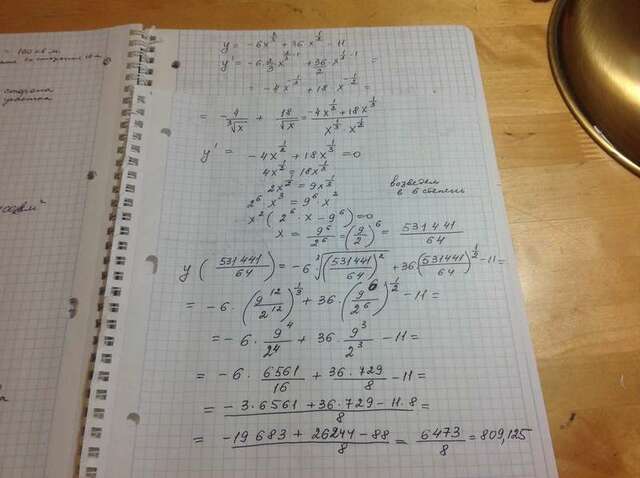 - 100 кв м.
сторона
участка
y = -6x^{2/3} + 36x^{1/2} - 11
y' = -6·2/3 x^{2/3-1} + 36/2 · x^{1/2-1} =
= -4x^{-1/3} + 18 x^{-1/2} =
= -4/∛x + 18/√x = (-4x^{1/2} + 18x^{1/3})/(x^{1/3} x^{1/2})
y' = -4x^{1/2} + 18x^{1/3} = 0
4x^{1/2} = 18x^{1/3}
2x^{1/2} = 9x^{1/3} возведем
2^6 x^3 = 9^6 x^2 в 6 степень
x^2 (2^6 · x - 9^6) = 0
x = 9^6/2^6 = (9/2)^6 = 531441/64
y (531441/64) = -6 ∛((531441/64)^2) + 36·(531441/64)^{1/2} - 11 =
= -6 · (9^{12}/2^{12})^{1/3} + 36 · (9^6/2^6)^{1/2} - 11 =
= -6 · 9^4/2^4 + 36 · 9^3/2^3 - 11 =
= -6 · 6561/16 + 36·729/8 - 11 =
= (-3·6561 + 36·729 - 11·8)/8 =
= (-19683 + 26244 - 88)/8 = 6473/8 = 809,125